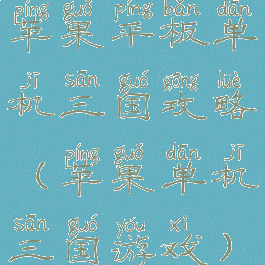 píng guǒ píng bǎn dān
苹果平板单
jī sān guó gōng lüè
机三国攻略
píng guǒ dān jī
(苹果单机
sān guó yóu xì
三国游戏)